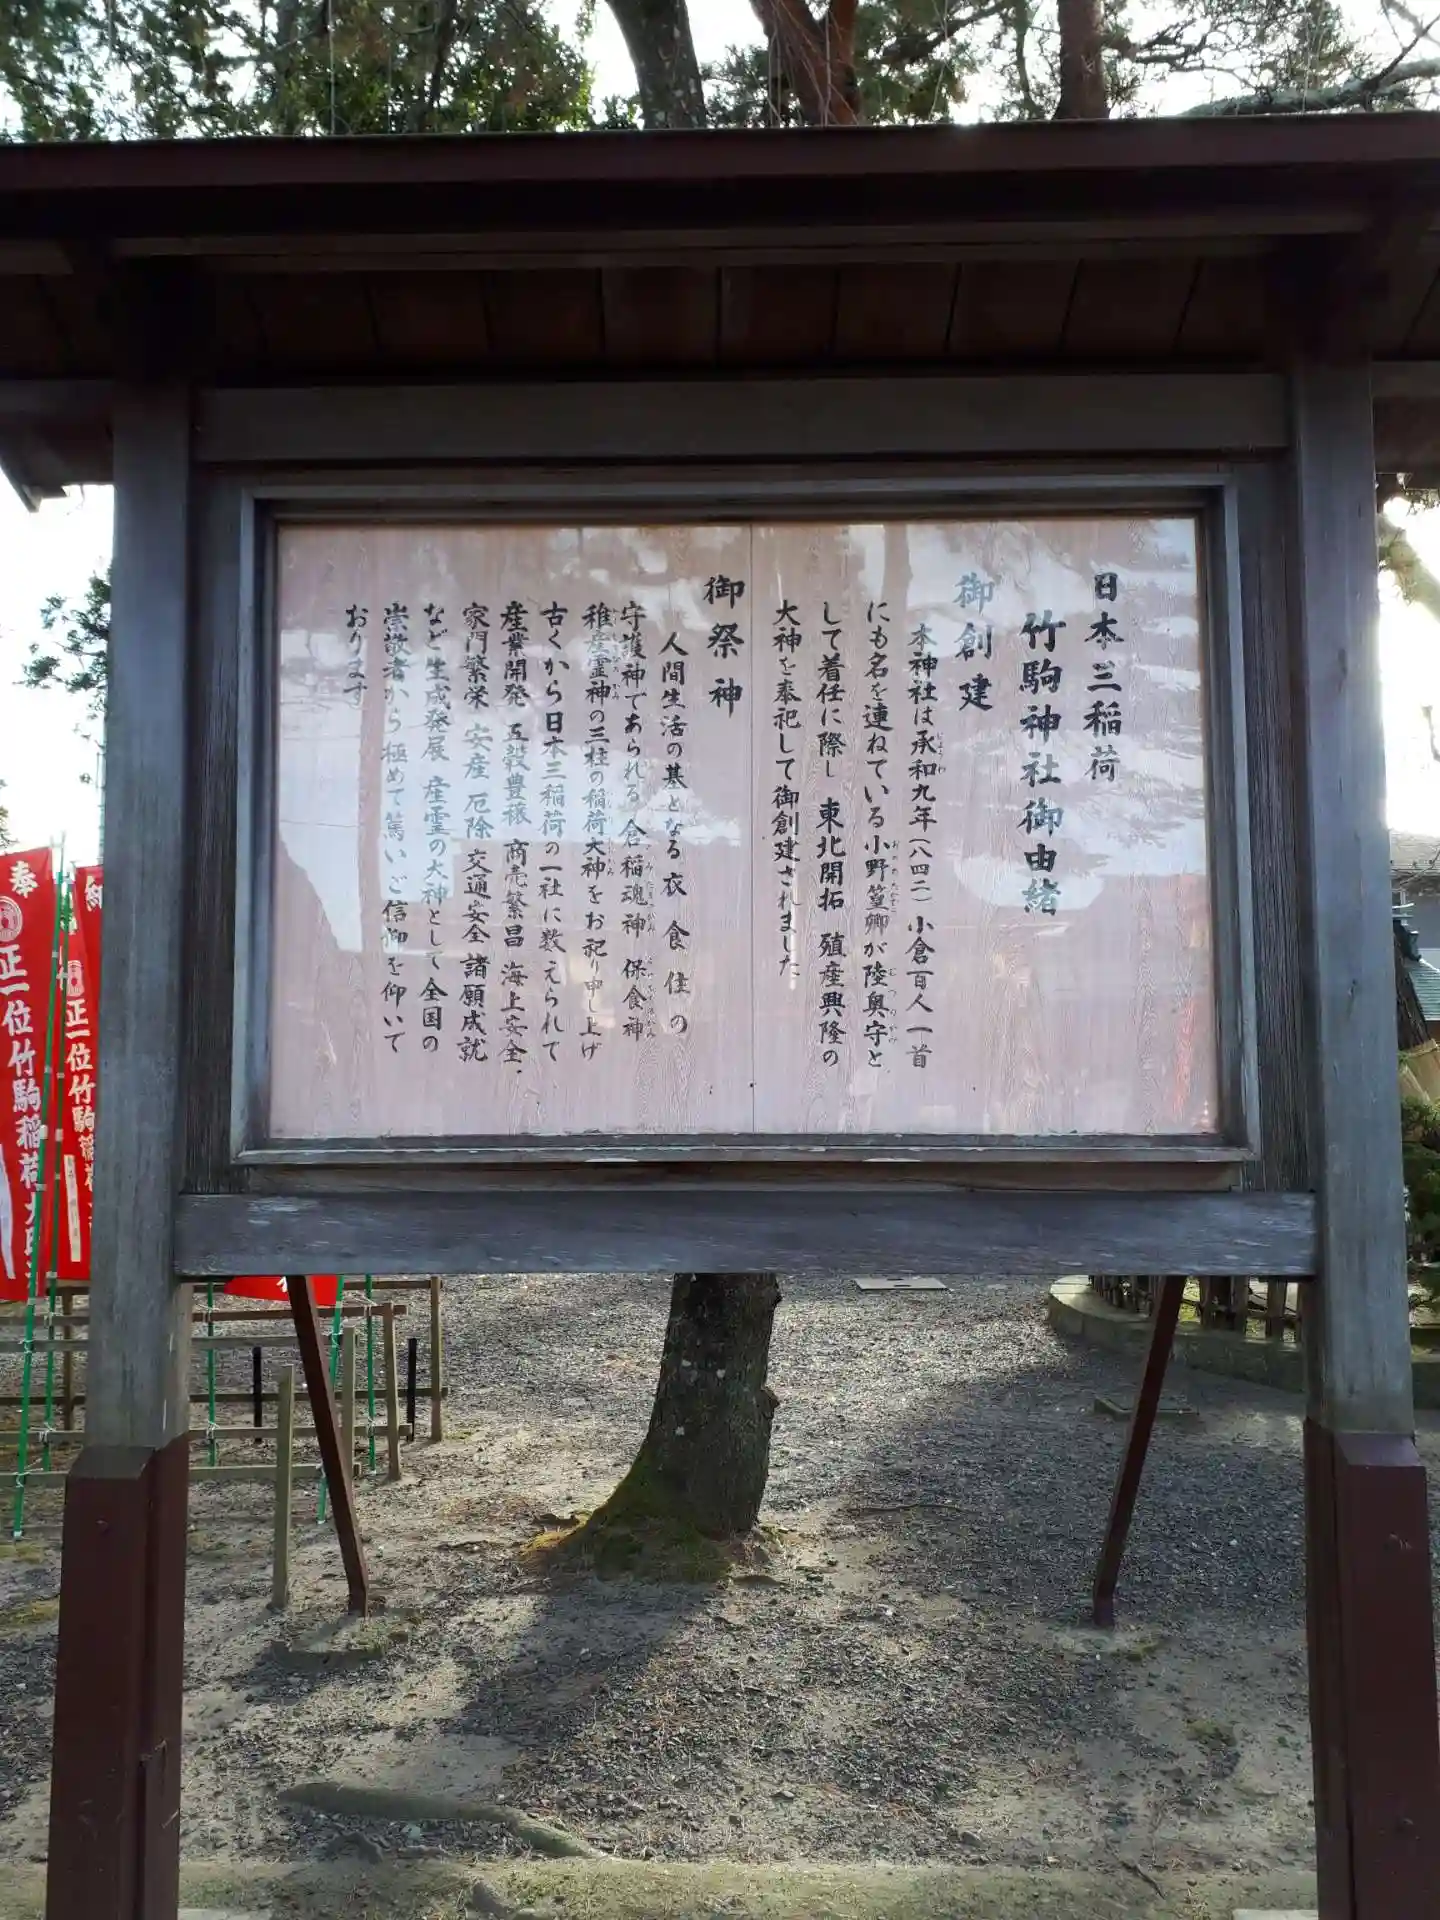 日本三稲荷
竹駒神社御由緒
御創建
本神社は承和九年(八四二)小倉百人一首
にも名を連ねている小野篁卿が陸奥守と
して着任に際し 東北開拓 殖産興隆の
大神を奉祀して御創建されました
御祭神
人間生活の基となる衣 食 住 の
守護神であられる倉稲魂神 保食神
稚産霊神の三柱の稲荷大神をお祀り申し上げ
古くから日本三稲荷の一社に数えられて
産業開発 五穀豊穣 商売繁昌 海上安全.
家門繁栄 安産 厄除 交通安全諸願成就
など生成発展 産霊の大神として全国の
崇敬者から極めて篤いご信仰を仰いて
おります
奉
正一位竹駒稲荷大明
正一位竹駒稲荷